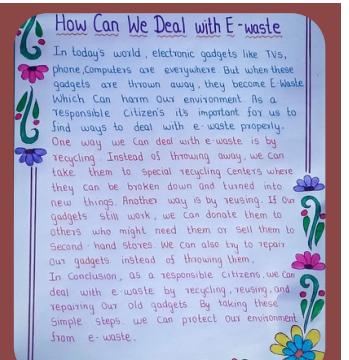 How Can We Deal with E-waste
In today's world, electronic gadgets like TVs,
phone, Computers are everywhere. But when these
gadgets are thrown away, they become E-Waste
Which Can harm Our environment. As a
responsible Citizen's it's important for us to
find ways to deal with e-waste properly.
One way we Can deal with e-waste is by
recycling. Instead of throwing away, we can
take them to special recycling Centers where
they can be broken down and turned into
new things. Another way is by reusing. If Our
gadgets still work, we can donate them to
others who might need them or sell them to
Second-hand Stores. We can also try to repair
Our gadgets instead of throwing them.
In Conclusion, as a responsible Citizens, we Can
deal with e-waste by recycling, reusing, and
repairing Our old gadgets. By taking these
Simple steps. we can protect Our environment
from e-waste.